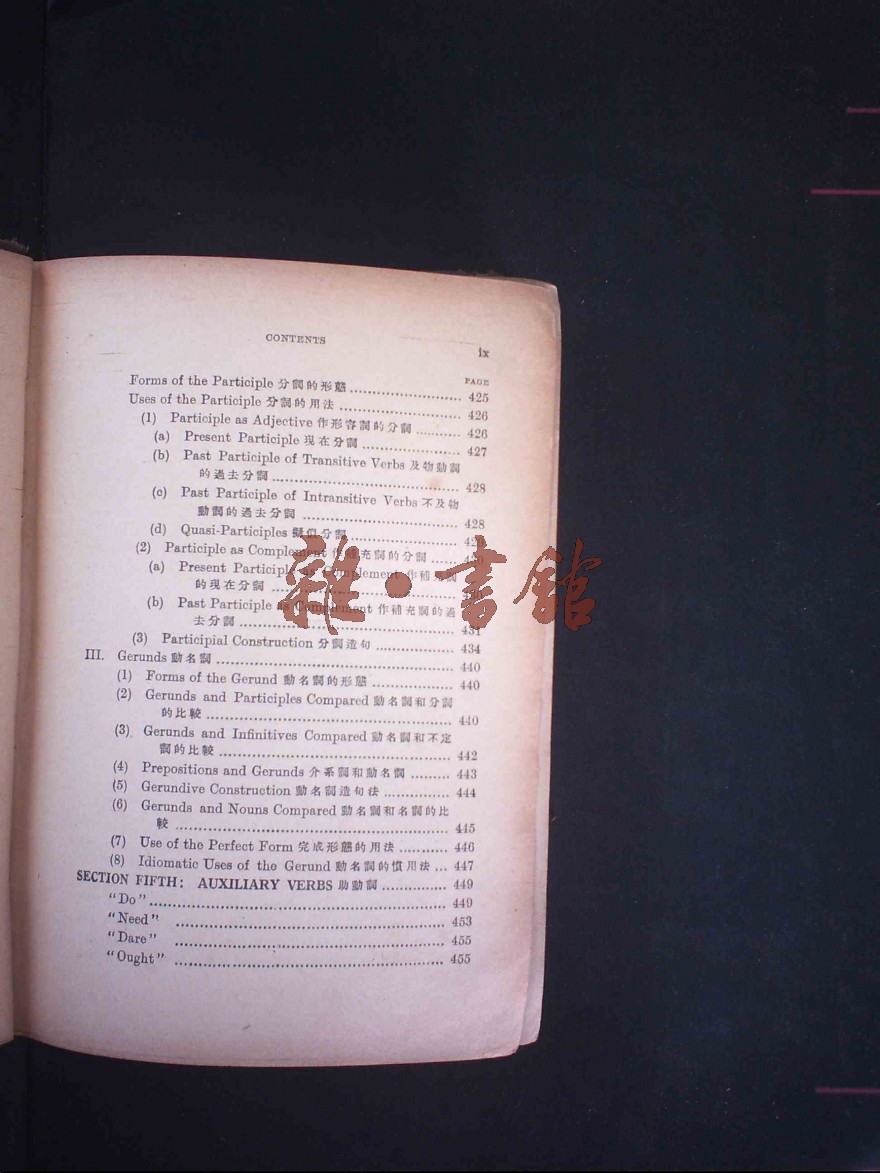 CONTENTS
ix
PAGE
Forms of the Participle 分詞的形態 425
Uses of the Participle 分詞的用法 426
(1) Participle as Adjective 作形容詞的分詞 426
(a) Present Participle 現在分詞 427
(b) Past Participle of Transitive Verbs 及物動詞
的過去分詞 428
(c) Past Participle of Intransitive Verbs 不及物
動詞的過去分詞 428
(d) Quasi-Participles 擬似分詞
(2) Participle as Complement 作補充詞的分詞
(a) Present Participle as Complement 作補充詞
的現在分詞
(b) Past Participle as Complement 作補充詞的過
去分詞 431
(3) Participial Construction 分詞造句 434
III. Gerunds 動名詞 440
(1) Forms of the Gerund 動名詞的形態 440
(2) Gerunds and Participles Compared 動名詞和分詞
的比較 440
(3) Gerunds and Infinitives Compared 動名詞和不定
詞的比較 442
(4) Prepositions and Gerunds 介系詞和動名詞 443
(5) Gerundive Construction 動名詞造句法 444
(6) Gerunds and Nouns Compared 動名詞和名詞的比
較 445
(7) Use of the Perfect Form 完成形態的用法 446
(8) Idiomatic Uses of the Gerund 動名詞的慣用法 ... 447
SECTION FIFTH: AUXILIARY VERBS 助動詞 449
"Do" 449
"Need" 453
"Dare" 455
"Ought" 455
雜·書館